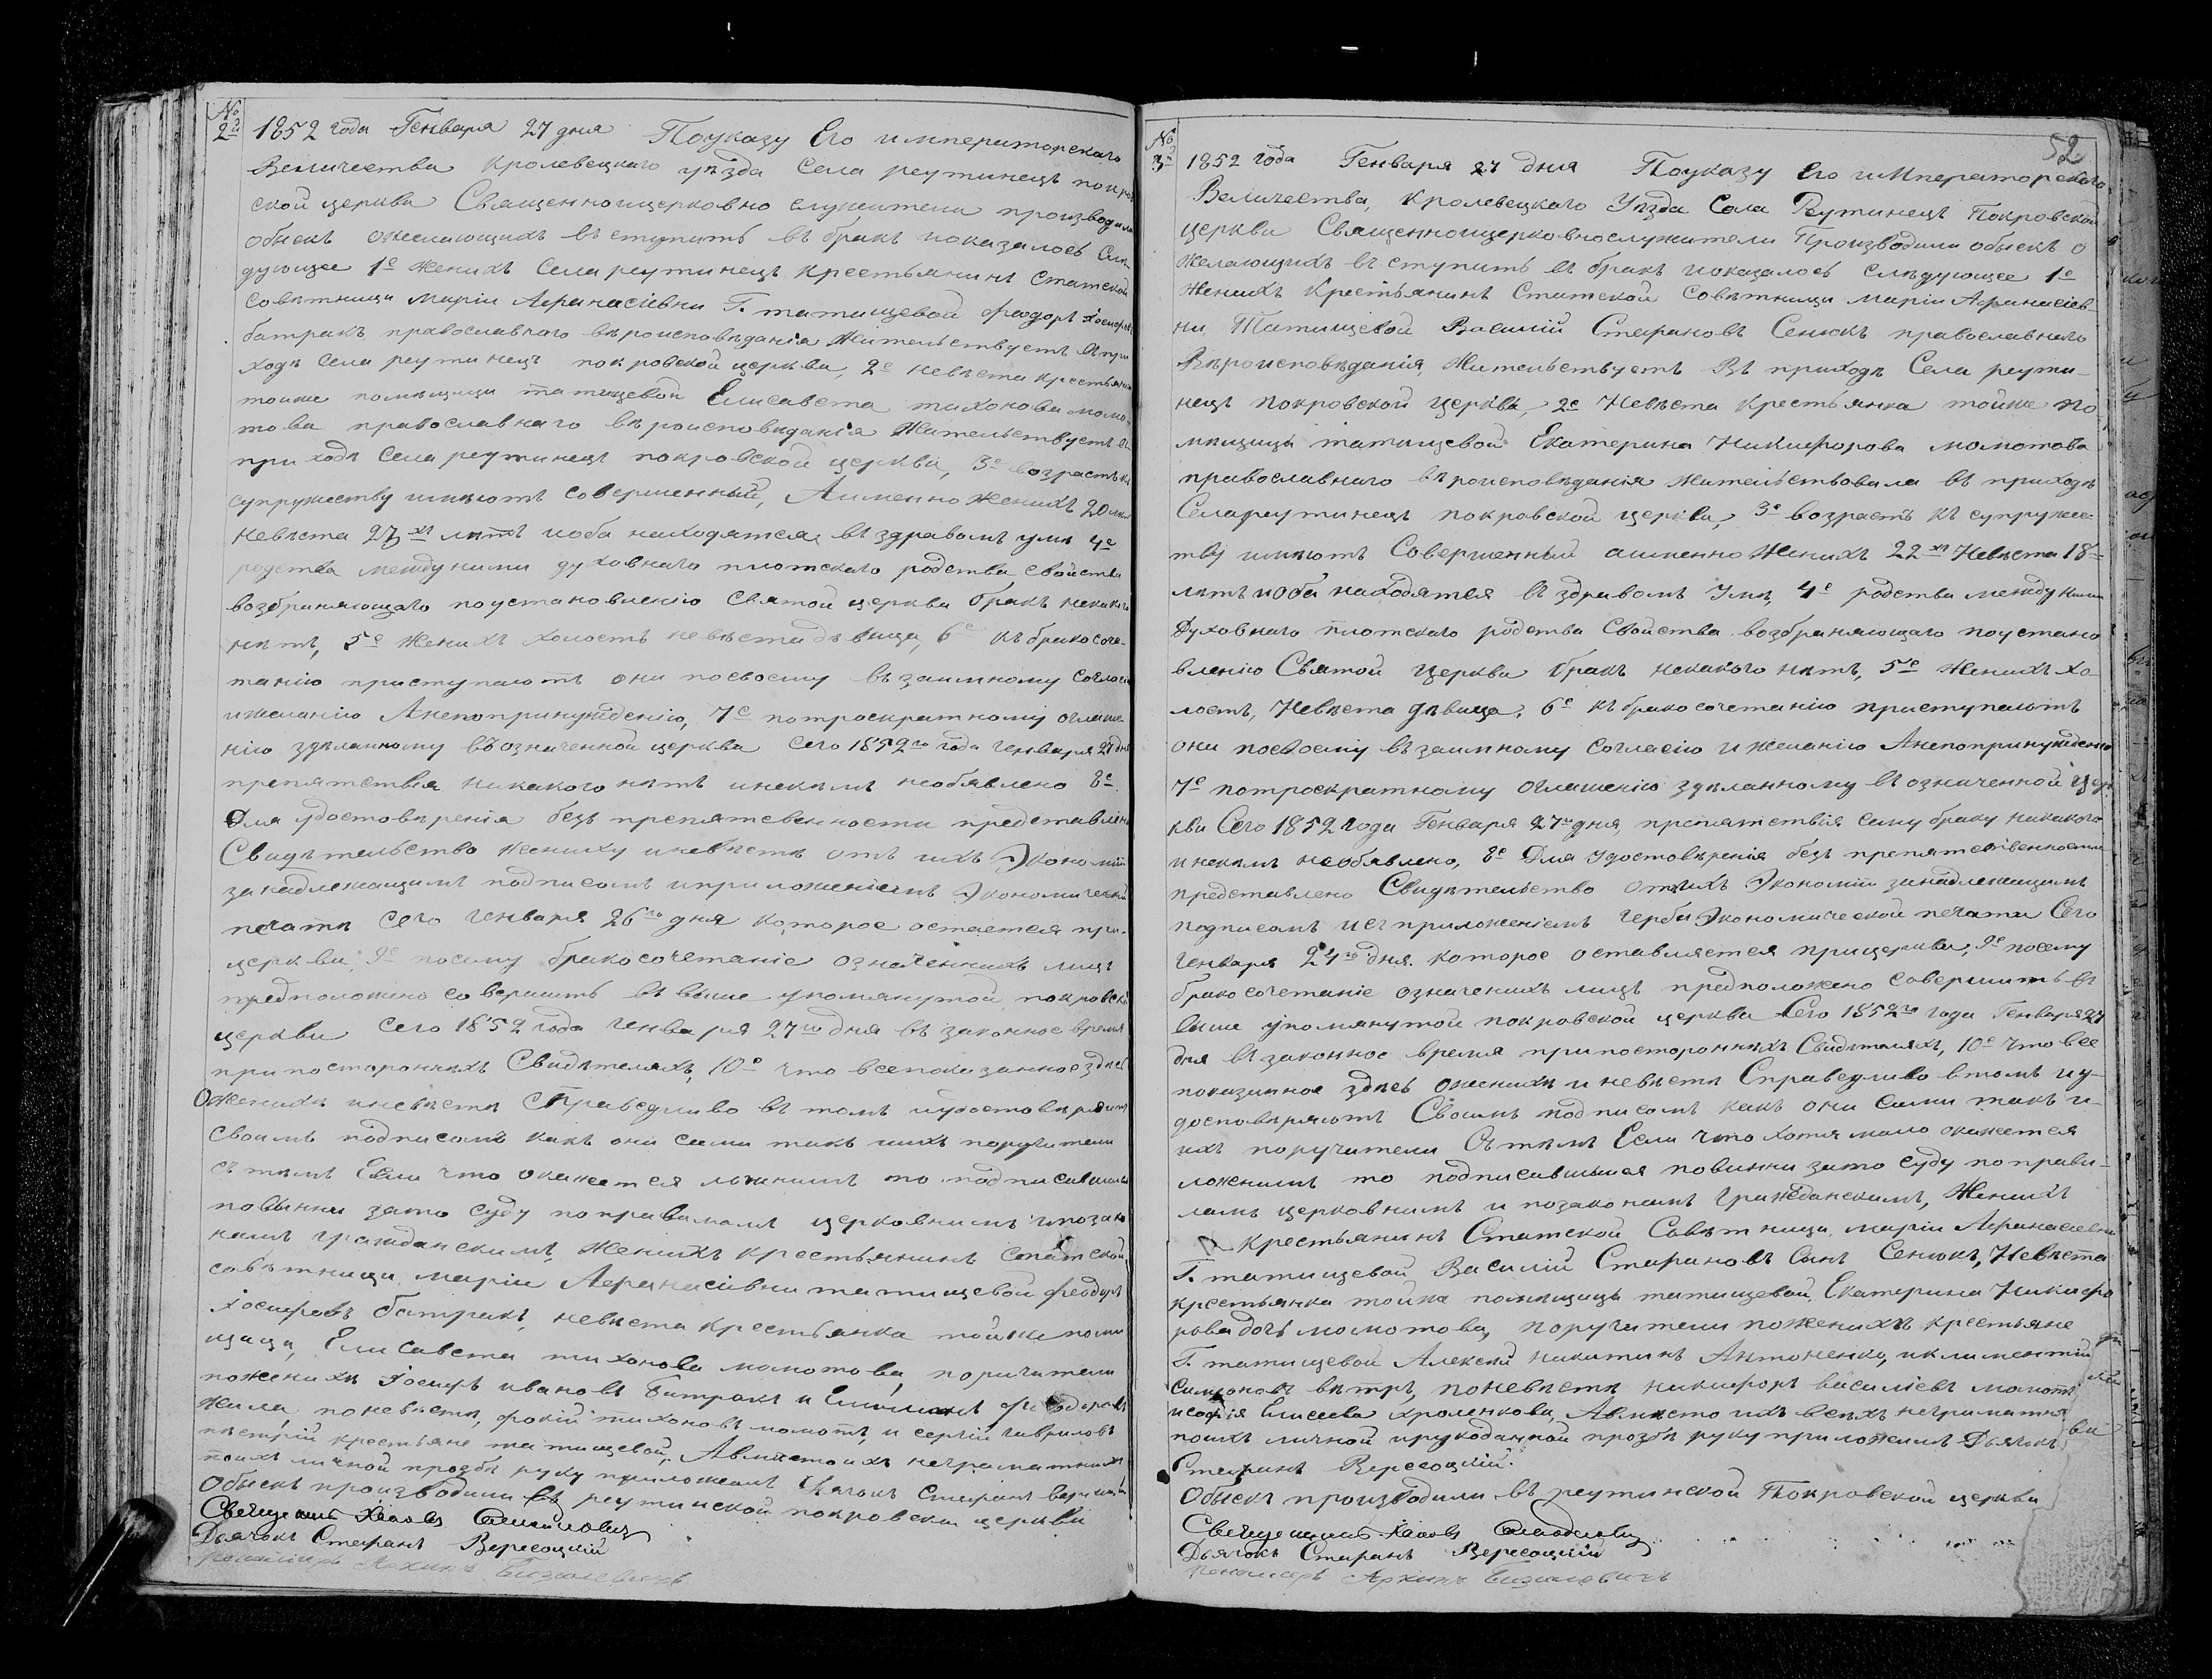 №
2й
1852 года Генваря 27 дня Поуказу Его императорскаго
Величества Кролевецкаго уѣзда Села реутинецъ покров
ской церкви Священноицерковно служители производили
обыскъ ожелающихъ въступить въ бракъ ипоказалось Слѣ-
дующее 1е Женихъ Села реутинецъ крестьянинъ Статской
совѣтници Маріи Афанасіевни Г. татищевой феодоръ Іосифовъ
батракъ православнаго вѣроисповѣданія Жительствуетъ въпри
ходѣ села реутинецъ покровской церкви, 2е невѣста крестьянка
тойже помѣщици татищевой Елисавета тихонова момо-
това православнаго вѣроисповѣданія Жительствуетъ въ
приходѣ Села реутинецъ покровской церкви, 3е возрастъ къ
супружеству имѣютъ совершенный, Аименно женихъ 20
Невѣста 27хъ лѣтъ иоба находятся въ здравомъ умѣ 4е
родства между ними духовнаго плотскаго родства свойства
возбраняющаго поустановленію святой церкви бракъ некакого
нѣтъ, 5е Женихъ холостъ невѣста дѣвица, 6е къ бракосоче-
танію приступаютъ они посвоему взаимному согласію
ижеланію Анепопринужденію, 7е потроекратному оглаше
нію здѣланному въ означенной церкви сего 1852го года генваря 27 дня
препятствія никакого нѣтъ инекимъ необявлено 8е
Для удостовѣренія безъ препятсвенности представлено
Свидѣтельство жениху иневѣстѣ отъ ихъ Экономіи
занадлежащимъ подписомъ иприложеніемъ Экономической
печати сего генваря 26го дня которое остается при
церкви, 9е посему бракосочетаніе означеннихъ лицъ
предположено совершить въ више упомянутой покровской
церкви сего 1852 года генваря 27го дня въ законное время
при постороннихъ Свидѣтеляхъ, 10е что всепоказанное здѣсь
Оженихѣ иневѣстѣ Справедливо въ томъ иудостовѣряютъ
своимъ подписомъ какъ они сами такъ иихъ поручители
сътѣмъ Если что окажется ложнимъ то подписавшіися
повинни зато суду поправиламъ церковнимъ ипозако
намъ гражданскимъ, Женихъ крестьянинъ Статской
совѣтници Маріи Афанасіевни татищевой феодоръ
Іосифовъ батракъ, невѣста крестьянка тойже помѣ
щици, Елисавета тихонова момотова, поручители
поженихѣ Іосифъ ивановъ батракъ и феодоровъ
Жила, поневѣстѣ, фокій тихоновъ момотъ, и сергій гавриловъ
крестьяне татищевой, Авмѣсто ихъ неграматнихъ
поихъ личной прозбѣ руку приложилъ Дьячокъ Стефанъ вересоцкій
Обыскъ производили въ реутинской покровской церкви
Священникъ Іаковъ
Дьячокъ Стефанъ Вересоцкій
пономарь Архипъ
52
№
3й
1852 года Генваря 27 дня Поуказу Его императорскаго
Величества, Кролевецкаго Уѣзда Села Реутинецъ Покровской
церкви Священноицерковнослужители Производили обыскъ о
желающихъ въступить въ бракъ ипоказалось слѣдующее 1е
Женихъ Крестьянинъ Статской Совѣтници Маріи Афанасіев-
ни Татищевой Василій Стефановъ Сенюкъ православнаго
Вѣроисповѣданія, Жительствуетъ Въ приходѣ Села реути-
нецъ покровской церкви, 2е Невѣста Крестьянка тойже по
мѣщици татищевой Екатерина Никифорова момотова
православнаго вѣроисповѣданія жительствовала въ приходѣ
Села реутинецъ покровской церкви, 3е возрастъ къ супруже-
тву имѣютъ Совершенный аименно Женихъ 22хъ Невѣста 18
лѣтъ иоба находятся въ здравомъ Умѣ, 4е родства между ними
Духовнаго плотскаго родства Свойства возбраняющаго поустано
вленію Святой Церкви бракъ некакого нѣтъ, 5е Женихъ хо-
лостъ, Невѣста дѣвица, 6е къ бракосочетанію приступаютъ
они посвоему взаимному согласію и желанію Анепопринужденію
7е потроекратному оглашенію здѣланному въ означенной цер
кви Сего 1852 года Генваря 27го дня, препятствія сему браку никакого
инекимъ необявлено, 8е Для удостовѣренія безъ препятственности
представлено Свидѣтельство отъихъ Экономіи занадлежащимъ
подписомъ исъприложеніемъ герба Экономической печати Сего
Генваря 24го дня. которое оставляется прицеркви, 9е посему
бракосочетаніе означенихъ лицъ предположено совершить въ
више упомянутой покровской церкви Сего 1852го года Генваря 27
дня въ законное время припостороннихъ Свидѣтеляхъ, 10е что все
показанное здѣсь оженихѣ и невѣстѣ Справедливо втомъ иу-
достовѣряютъ Своимъ подписомъ какъ они сами такъ и
ихъ поручители Сътѣмъ Если что хотя мало окажется
ложнимъ то подписавшіися повинни зато суду поправи-
ламъ церковнимъ и позаконамъ гражданскимъ, Женихъ
крестьянинъ Статской Совѣтници Маріи Афанасіевни
Г. татищевой Василій Стефановъ Сынъ Сенюкъ, Невѣста
крестьянка тойже помѣщици татищевой, Екатерина Никифо
рова дочь момотова, поручители поженихѣ крестьяне
Г. татищевой Алексѣй никитинъ Антоненко, иклиментій
Симоновъ вѣтръ, поневѣстѣ никифоръ василіевъ момотъ
исофія Елисеева хроленкова, Авмѣсто ихъ всѣхъ неграматнихъ
поихъ личной ирукоданной прозбѣ руку приложилъ Дьячокъ
Стефанъ Вересоцкій.
Обыскъ производили въ реутинской Покровской церкви
Священникъ Іаковъ
Дьячокъ Стефанъ Вересоцкій
пономарь Архипъ